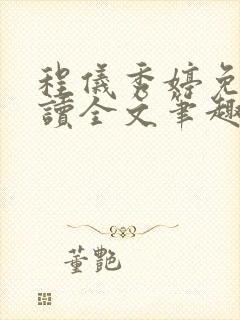 程儀秀婷免
讀全文筆趣
董艷